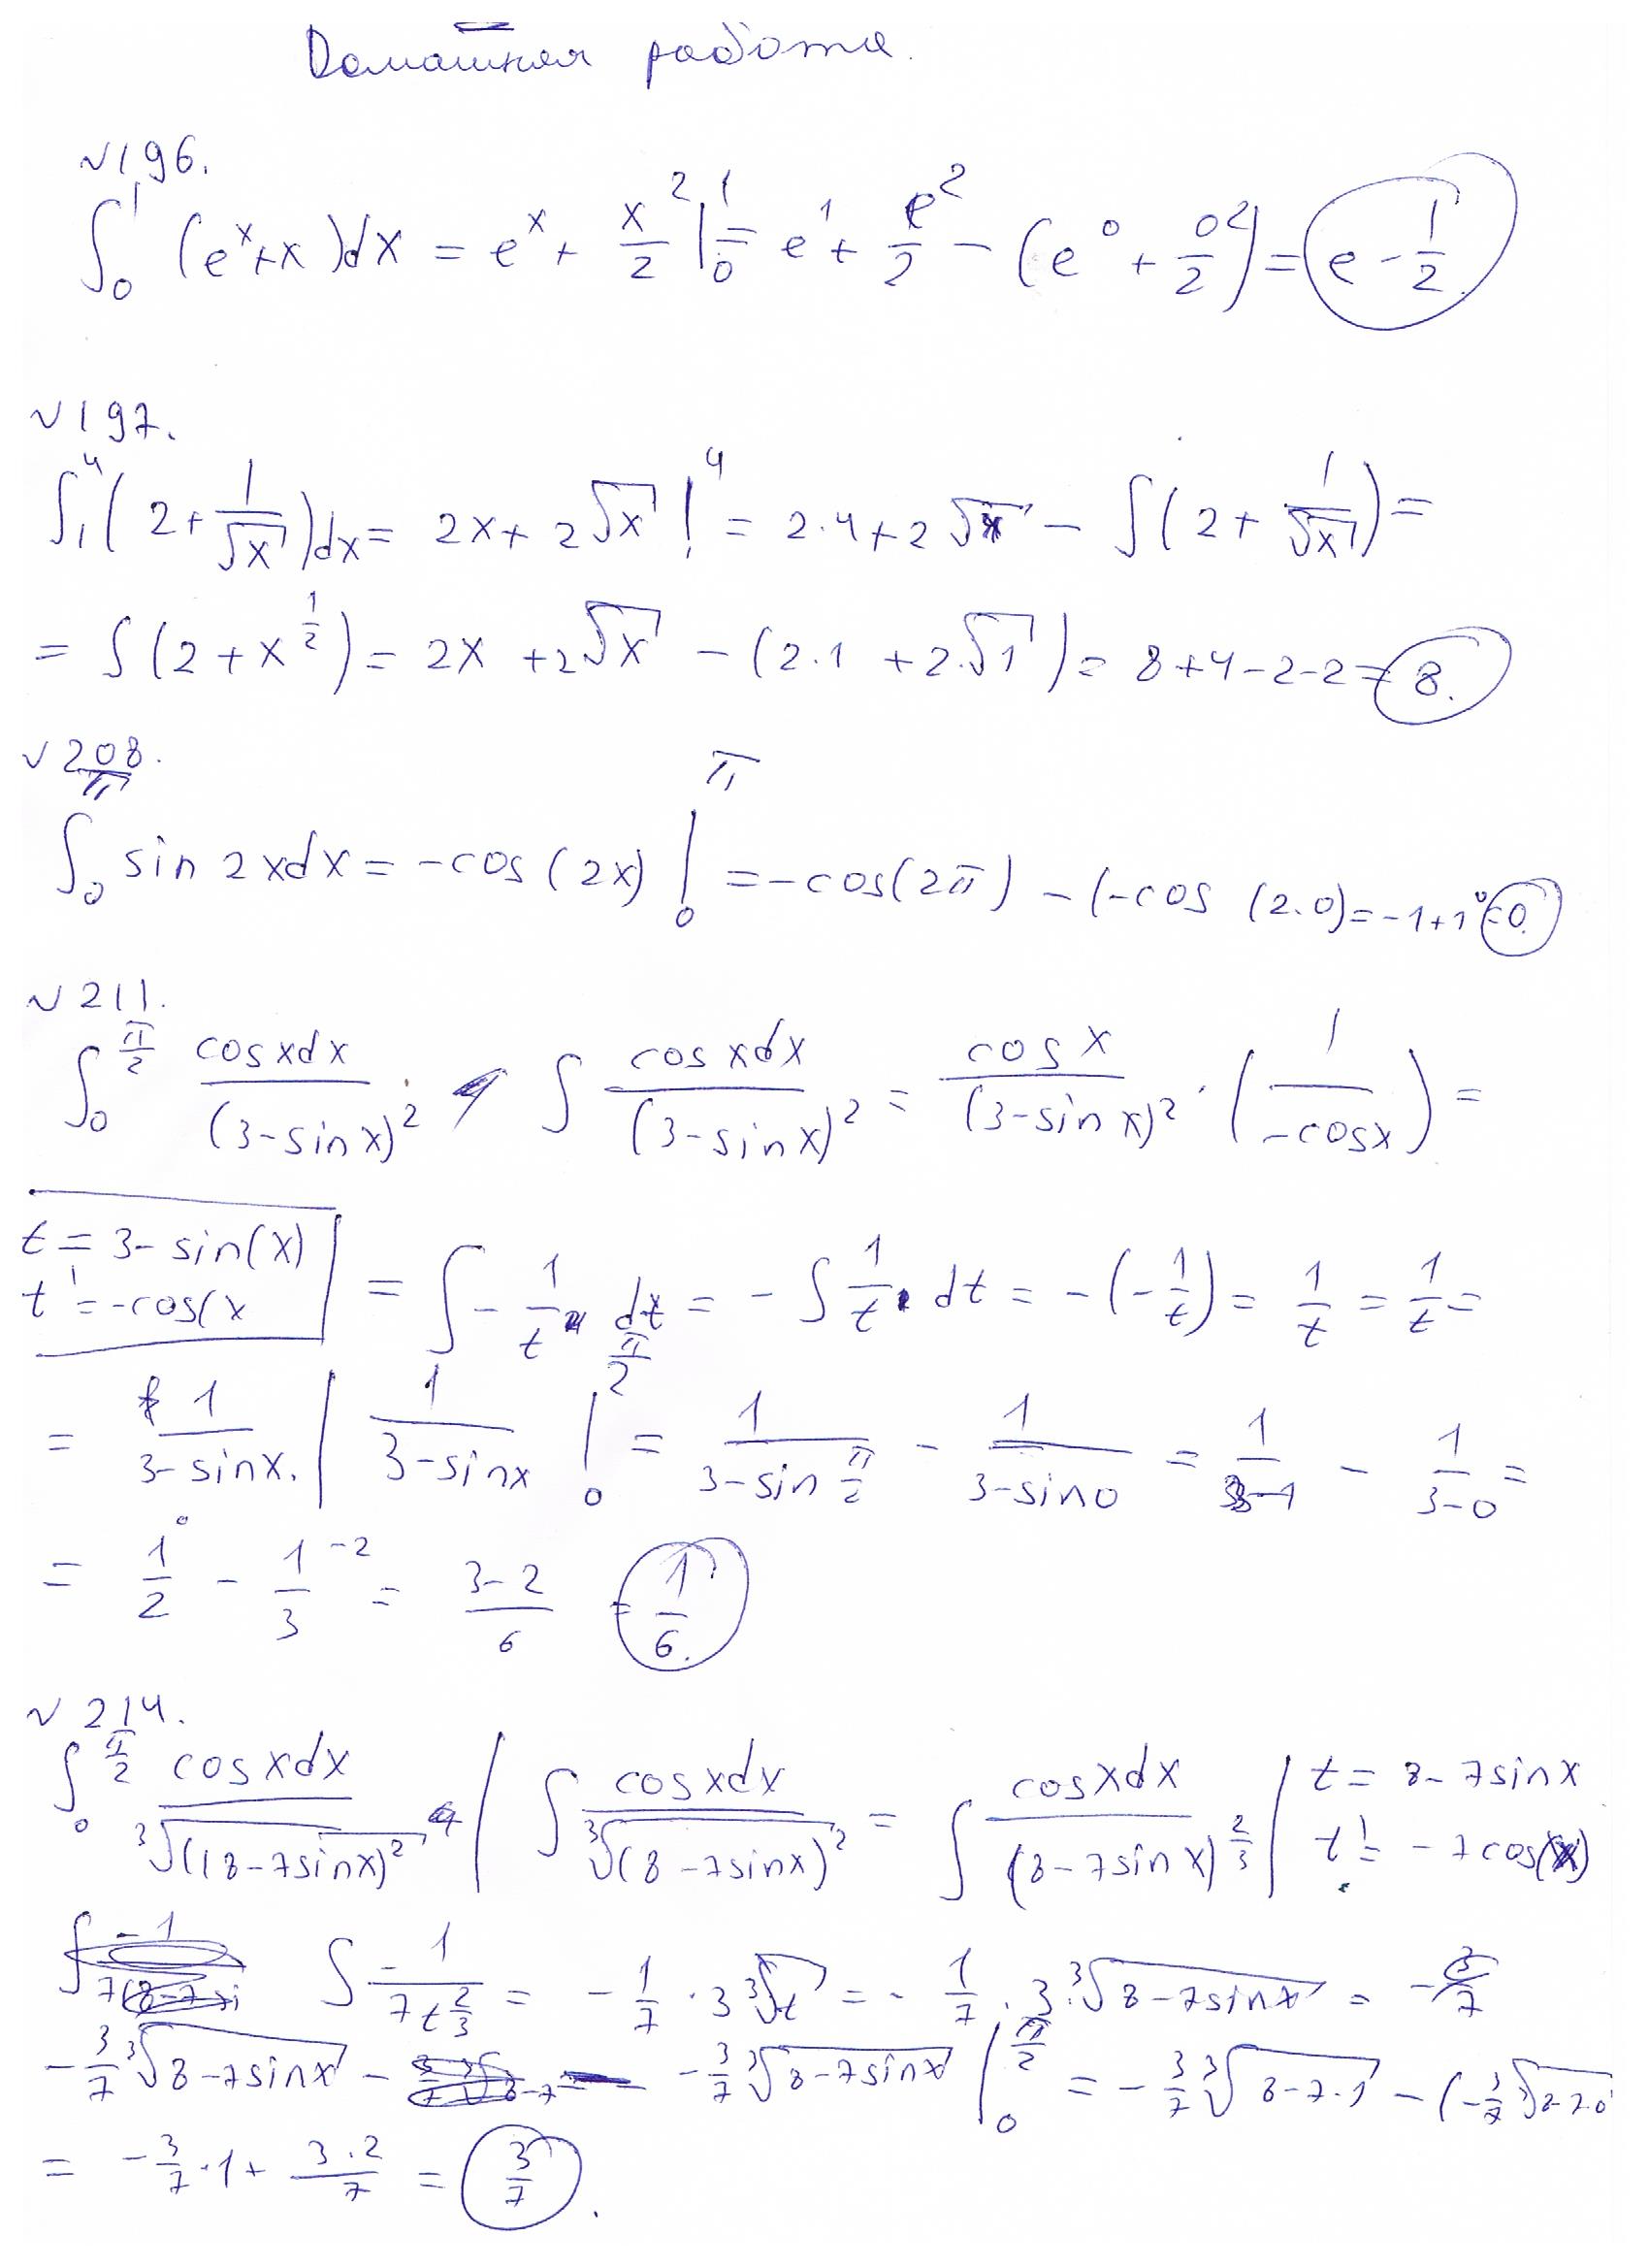 Домашняя работа.
№196.
∫₀¹ (eˣ+x)dx = eˣ + x²/2 |₀¹ = e¹ + e²/2 − (e⁰ + 0²/2) = e − 1/2.
№197.
∫₁⁴ (2 + 1/√x)dx = 2x + 2√x |₁⁴ = 2·4 + 2√x − ∫(2 + 1/√x) =
= ∫(2 + x^(1/2)) = 2x + 2√x − (2·1 + 2·√1) = 8+4−2−2 = 8.
√208.
∫₀^π sin 2xdx = −cos(2x) |₀^π = −cos(2π) − (−cos (2·0) = −1+1 = 0.
№211.
∫₀^(π/2) cosxdx/(3−sinx)² ∫ cosxdx/(3−sinx)² = cosx/(3−sinx)² · (1/−cosx) =
t = 3− sin(x)
t' = −cos(x
= ∫ − 1/t dt = − ∫ 1/t · dt = −(−1/t) = 1/t = 1/t =
= 1/(3−sinx). | 1/(3−sinx) |₀^(π/2) = 1/(3−sin π/2) − 1/(3−sin0) = 1/(3−1) − 1/(3−0) =
= 1/2 − 1/3 ⁻² = (3−2)/6 = 1/6.
№214.
∫₀^(π/2) cosxdx/∛((8−7sinx)² | ∫ cosxdx/∛(8−7sinx)² = ∫ cosxdx/(8−7sinx)^(2/3) | t = 8−7sinx
t' = −7cos(x)
∫ −1/(7t^(2/3)) = −1/7 · 3∛t = −1/7 · 3·∛(8−7sinx) = −3/7
−3/7 ∛(8−7sinx) − −3/7 ∛(8−7sinx) |₀^(π/2) = −3/7 ∛(8−7·1) − (−3/7 ∛(8−7·0)
= −3/7·1 + 3·2/7 = 3/7.